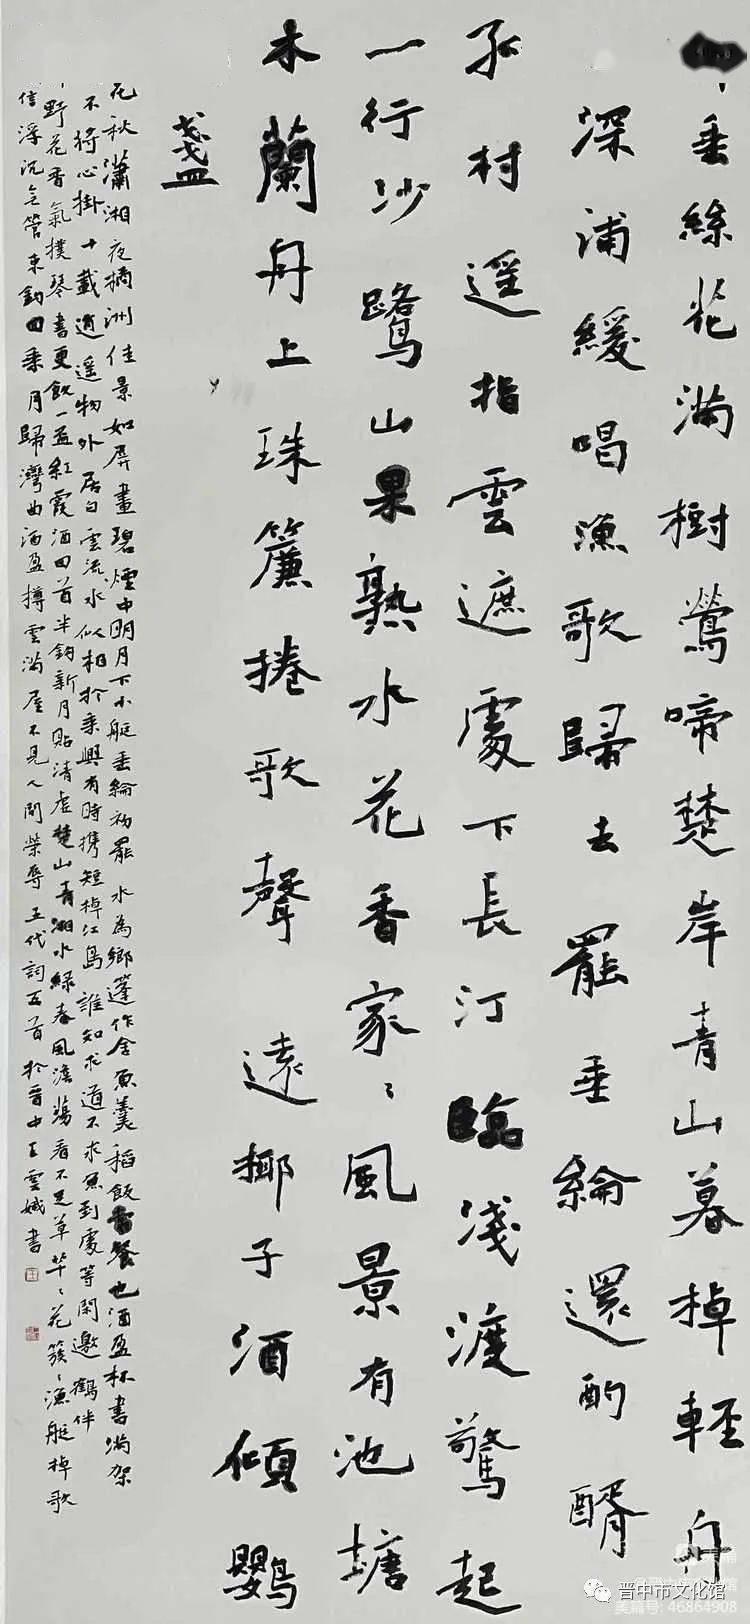 垂絲花滿樹鶯啼楚岸青山暮棹輕舟
深浦緩唱漁歌歸去罷垂綸還酌醑
孤村遥指雲遮處下長汀臨淺渡驚起
一行沙鷺山果熟水花香家〻風景有池塘
木蘭舟上珠簾捲歌聲遠椰子酒傾鸚
盞
花秋瀟湘夜橘洲佳景如屏畫碧煙中明月下小艇垂綸初罷水為鄉蓬作舍魚羹稻飯常餐也酒盈杯書滿架
不將心掛十載逍遥物外居白雲流水似相於乘興有時携短棹江島誰知求道不求魚到處等閑邀鶴伴
野花香氣撲琴書更飲一盃紅霞酒回首半鈎新月貼清虛楚山青湘水綠春風澹蕩看不足草芊〻花簇〻漁艇棹歌
信浮沉無管束釣回乘月歸灣曲酒盈樽雲滿屋不見人間榮辱五代詞五首於晋中王雲娥書
美篇
@晋中市文化馆
美篇号: 46864908
晋中市文化馆